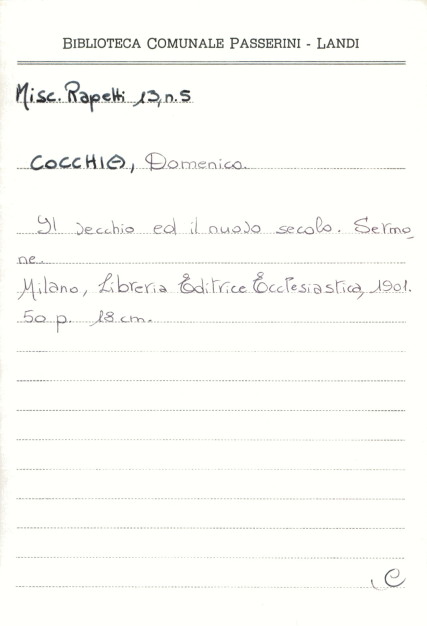 BIBLIOTECA COMUNALE PASSERINI - LANDI
Misc. Rapetti 13, n. 5
COCCHIA, Domenico.
Il vecchio ed il nuovo secolo. Sermo_
ne.
Milano, Libreria Editrice Ecclesiastica, 1901.
50 p. 18 cm.
C